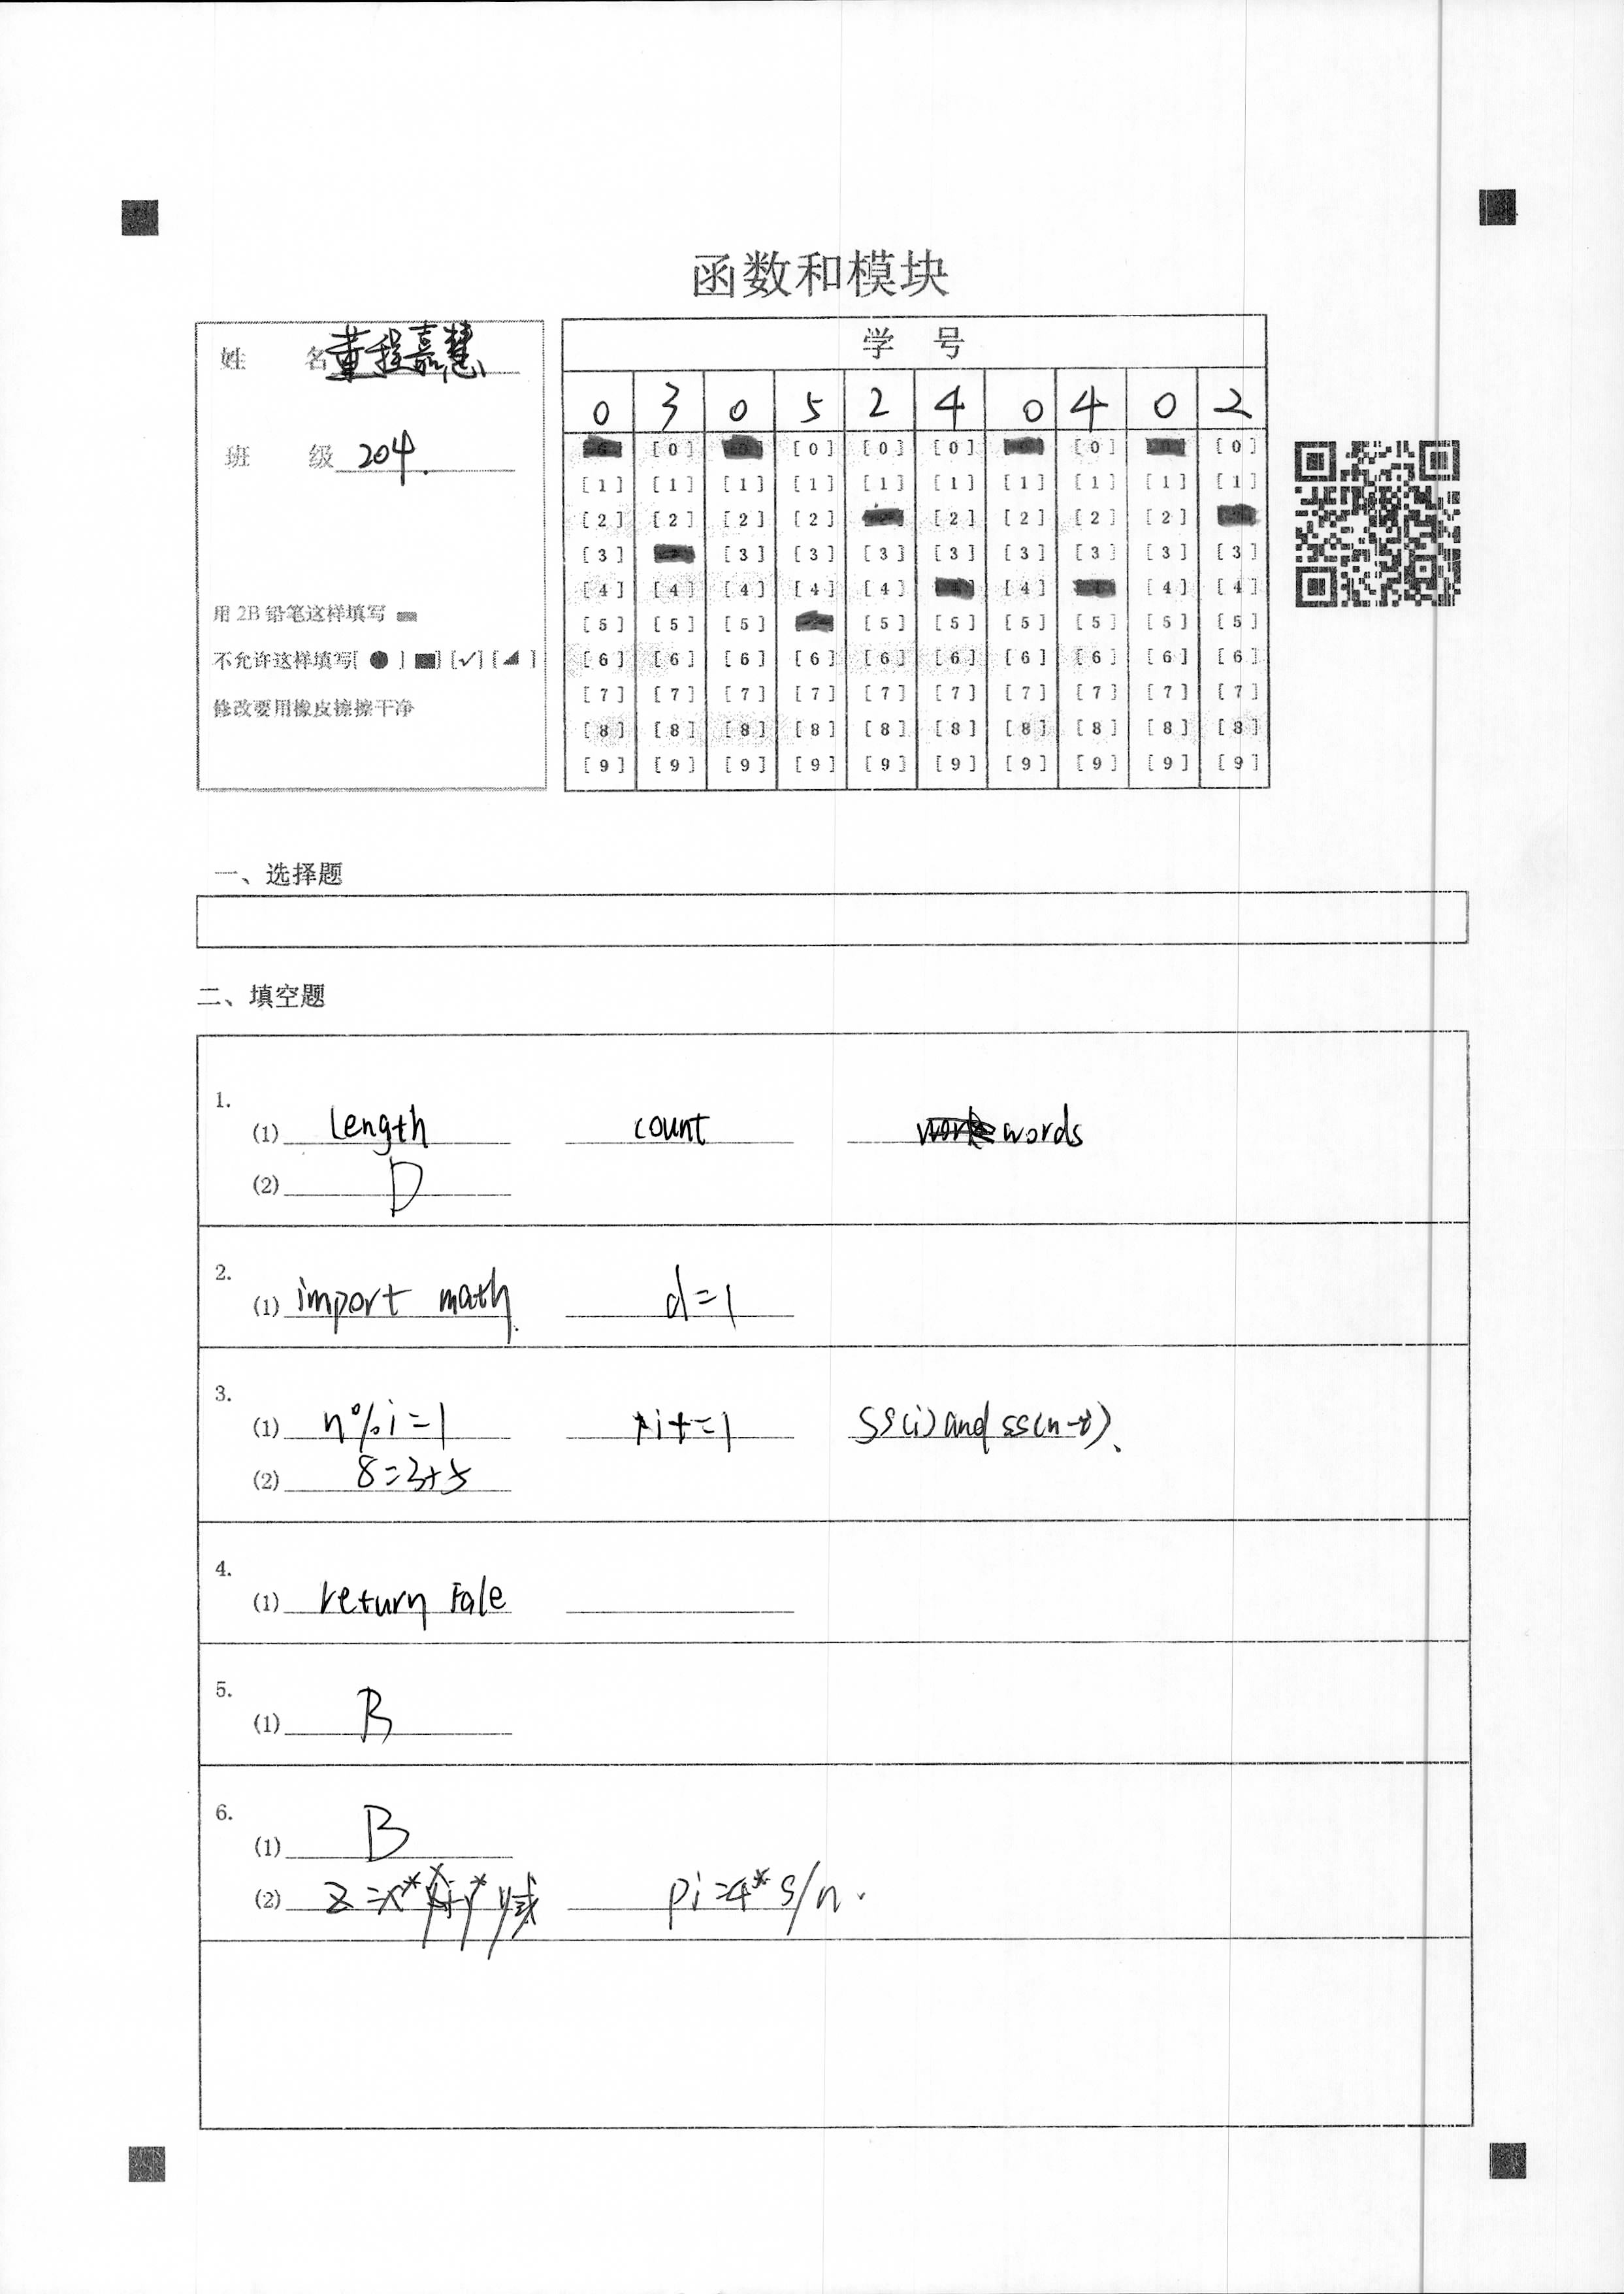 函数和模块
姓 名 董程嘉慧
班 级 204.
用 2B 铅笔这样填写
不允许这样填写[ ● ] [■] [✓] [◢]
修改要用橡皮擦擦干净
学 号
0 3 0 5 2 4 0 4 0 2
[0] [0] [0] [0] [0] [0]
[1] [1] [1] [1] [1] [1] [1] [1] [1] [1]
[2] [2] [2] [2] [2] [2] [2] [2]
[3] [3] [3] [3] [3] [3] [3] [3] [3]
[4] [4] [4] [4] [4] [4] [4] [4]
[5] [5] [5] [5] [5] [5] [5] [5] [5]
[6] [6] [6] [6] [6] [6] [6] [6] [6] [6]
[7] [7] [7] [7] [7] [7] [7] [7] [7] [7]
[8] [8] [8] [8] [8] [8] [8] [8] [8] [8]
[9] [9] [9] [9] [9] [9] [9] [9] [9] [9]
一、选择题
二、填空题
1.
(1) length count words
(2) D
2.
(1) import math d=1
3.
(1) n%i=1 i+=1 ss(i) and ss(n-i)
(2) 8=3+5
4.
(1) return Fale
5.
(1) B
6.
(1) B
(2) z=x* pi=4*s/n.